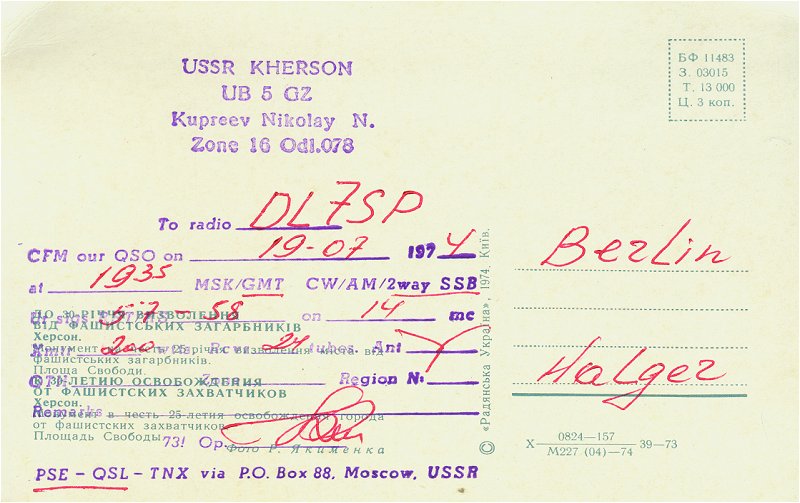 USSR KHERSON
UB 5 GZ
Kupreev Nikolay N.
Zone 16 Obl.078
БФ 11483
З. 03015
Т. 13 000
Ц. 3 коп.
To radio DL7SP
CFM our QSO on 19-07 1974
at 1935 MSK/GMT CW/AM/2way SSB
Ur sigs 57 - 58 on 14 mc
ДО 30-РІЧЧЯ ВИЗВОЛЕННЯ
ВІД ФАШИСТСЬКИХ ЗАГАРБНИКІВ
Херсон.
Xmtr 200 Rcvr 24 tubes. Ant Y
Монумент на честь 25-річчя визволення міста від
фашистських загарбників.
Площа Свободи.
QTH Region №
К 30-ЛЕТИЮ ОСВОБОЖДЕНИЯ
ОТ ФАШИСТСКИХ ЗАХВАТЧИКОВ
Херсон.
Remarks
Монумент в честь 25-летия освобождения города
от фашистских захватчиков.
Площадь Свободы
73! Op.
Фото Р. Якименка
PSE - QSL - TNX via P.O. Box 88, Moscow, USSR
© «Радянська Україна», 1974. Київ.
Berlin
Halger
X 0824—157
М227 (04)—74 39—73